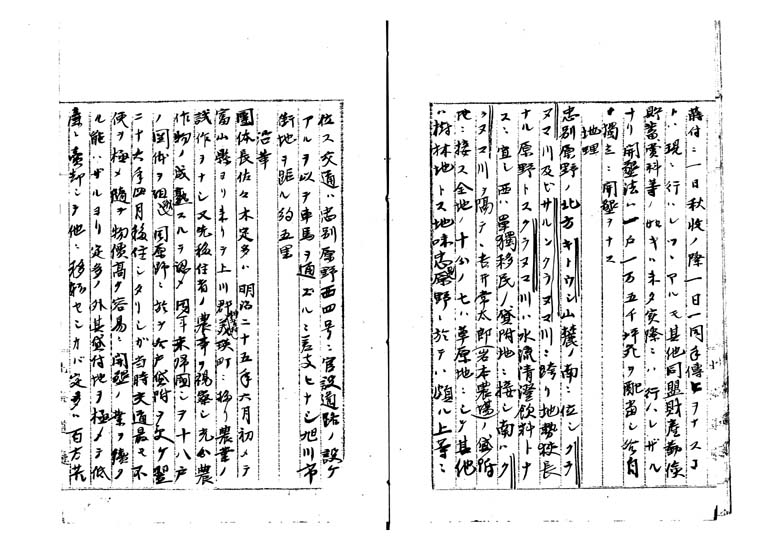 蒔付ニ一日秋收ノ際一日一同手傳ヒヲナスコ
ト、現ニ行ハレツヽアルモ其他同盟財産勤倹
貯蓄賞科等ノ如キハ未タ実際ニハ行ハレザル
ナリ開墾法ハ一戸一万五千坪宛ヲ配当シ各自
獨立ニ開墾ヲナス
地理
忠別原野ノ北方キトウシ山麓ノ南ニ位シクラ
ヌマ川及ビサルンクラヌマ川ニ跨リ地勢狹長
ナル原野トスクラヌマ川ハ水流清澄飲料トナ
スニ宜シ西ハ単獨移民ノ貸附地ニ接シ南ハク
ラヌマ川ヲ隔テ吉井幸太郎岩本農場ノ貸附
地ニ接ス全地十分ノ七ハ草原地ニシテ其他
ハ樹林地トス地味忠別原野ニ於テハ頗ル上等ニ
位ス交通ハ忠別原野西四号ニ官設道路ノ設ケ
アルヲ以テ車馬ヲ通ズルニ差支ヒナシ旭川市
街地ヲ距ル約五里
沿革
團体長佐々木定多ハ明治二十五年六月初メテ
富山縣ヨリ来リテ上川郡ニ移リ農業ノ
試作ヲナシ又先移住者ノ農事ヲ視察シ充分農
作物ノ成熟スルヲ認メ同年末帰國シテ十八戸
ノ団体ヲ組織シ同原野ニ於テ各戸貸附ヲ受ケ翌
二十六年四月移住シタリシガ当時交通甚ダ不
便ヲ極メ随テ物價高ク容易ニ開墾ノ業ヲ続ク
ル能ハザルヨリ定多ノ外其貸付地ヲ極メテ低
廉ニ賣却シテ他ニ移転センカバ定多ハ百方苦